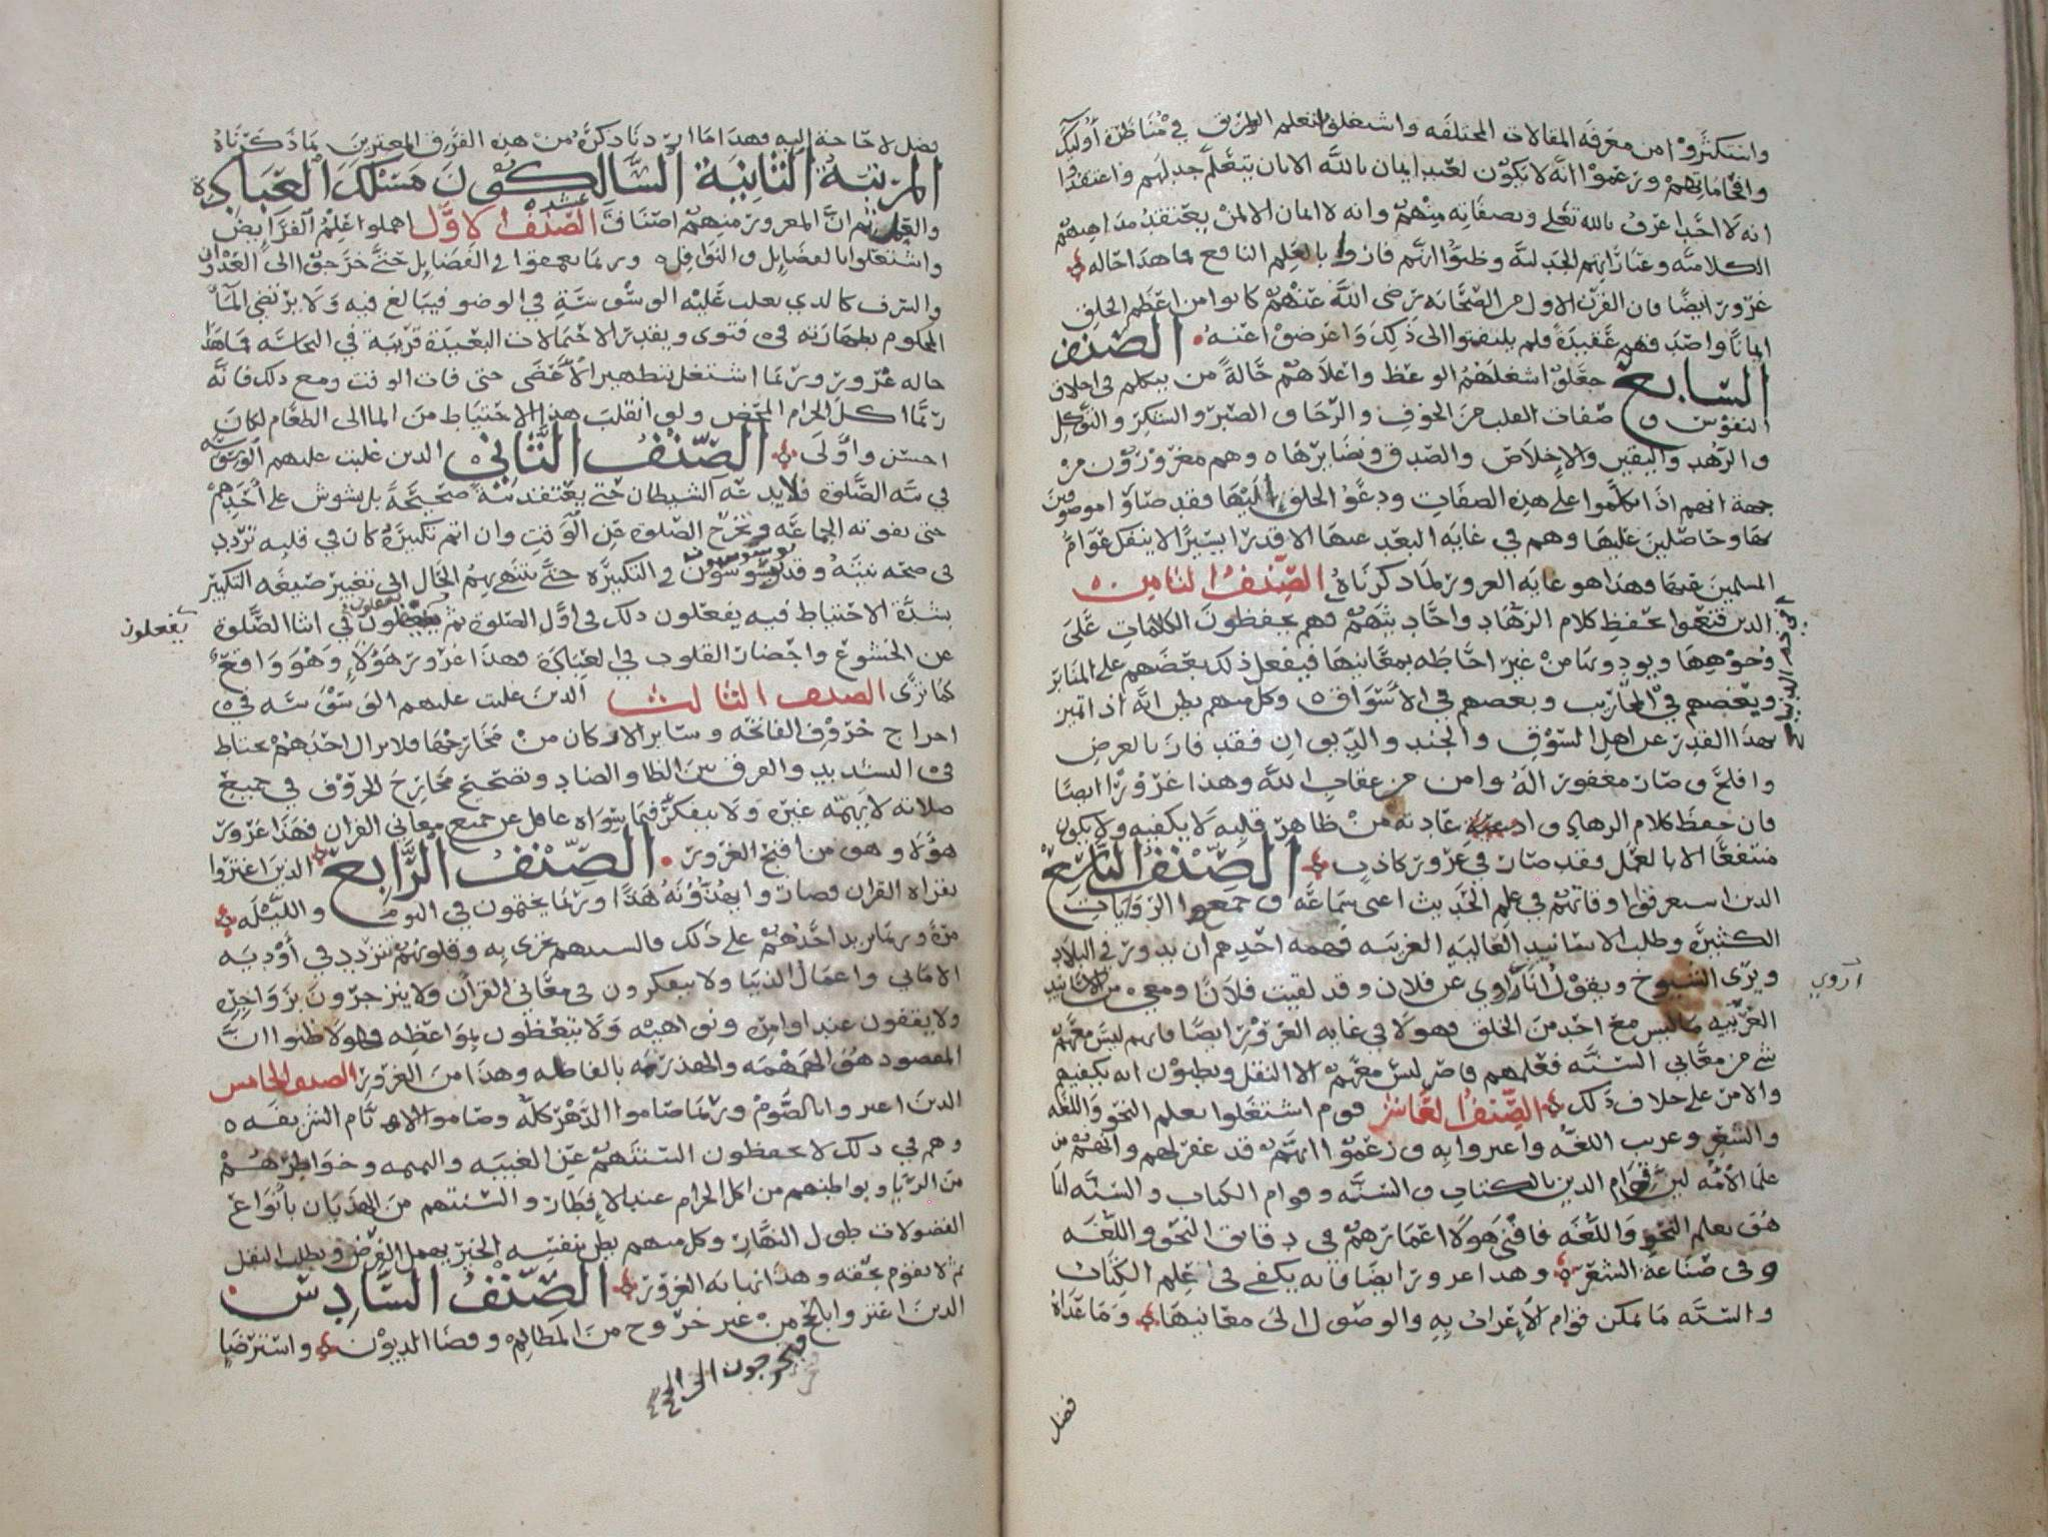 واستكثروا من معرفه المقالات المختلفه واشتغلوا بتعلم الطريق في مناظرة أوليك
وافحاماتهم وزعموا انه لا يكون لعبد ايمان بالله الا بان يتعلم جدلهم واعتقدوا
انه لا احد اعرف بالله تعلى وبصفاته منهم وانه لا ايمان الا لمن يعتقد مذاهبهم
الكلاميه وعباراتهم الجدليه وظنوا انهم فازوا بالعلم النافع فما هذا حاله
غرور ايضا فان القرن الاول من الصحابه رضى الله عنهم كانوا من اعظم الخلق
ايمانا واصدقهم عقيدة فلم يلتفتوا الى ذلك واعرضوا عنه الصنف
السابع جعلوا اشغلهم الوعظ واعلاهم حالة من يتكلم في اخلاق
النفوس وصفات القلب من الخوف والرجا والصبر والشكر والتوكل
والزهد واليقين والاخلاص والصدق ونضايرها وهم مغرورون من
جهة انهم اذا تكلموا على هذه الصفات ودعوا الخلق اليها فقد صاروا موصوفين
بها وحاصلين عليها وهم في غايه البعد عنها الا قدرا يسيرا لا ينفك عوام
المسلمين فيها وهذا هو غايه الغرور لما ذكرناه الصنف الثامن
الذين قنعوا بحفظ كلام الزهاد واحاديثهم فهم يحفظون الكلمات على
وجوهها ويودونها من غير احاطه بمعانيها فيفعل ذلك بعضهم على المنابر
وبعضهم في المحاريب وبعضهم في الاسواق وكل منهم يظن انه اذا تميز
بهذا القدر عن اهل السوق والجند والديوان فقد فاز بالغرض
وافلح وصار مغفورا له وامن من عقاب الله وهذا غرور ايضا
فان حفظ كلام الزهاد وادعيه عادته من ظاهر قلبه لا يكفيه ولا يكون
منتفعا الا بالعمل فقد صار في غرور كاذب الصنف التاسع
الذين استغرقوا اوقاتهم في علم الحديث اعني سماعه وجمعوا الروايات
الكثيرة وطلب الاسانيد العاليه الغريبه فهمه احدهم ان يدور في البلاد
ويرى الشيوخ ويقول انا راوي عن فلان وقد لقيت فلانا ومعي من الاسانيد
اروي
الغريبه ما ليس مع احد من الخلق فهولا في غايه الغرور ايضا فانهم ليس معهم
شي من معاني السنه فعلمهم قاصر ليس معهم الا النقل ويظنون انه يكفيهم
والامر على خلاف ذلك الصنف العاشر قوم اشتغلوا بعلم النحو واللغه
والشعر وغريب اللغه واغتروا به وزعموا انهم قد غفر لهم وانهم من
علما الأمه لين قوام الدين بالكتاب والسنه وقوام الكتاب والسنه انما
هو بعلم النحو واللغه فافنى هولا اعمارهم في دقايق النحو واللغه
وفي صناعة الشعر وهذا غرور ايضا فانه يكفي في علم الكتاب
والسنه ما يمكن قوام الاعراب به والوصول الى معانيها وما عداه
فضل
فضل لا حاجة اليه فهذا ما اردنا ذكره من هذه الفرق المغترين بما ذكرناه
المرتبة الثانية السالكون مسلك العباده
والعمل ثم ان المغرور منهم اصناف عشر الصنف الاول اهملوا علم الفرايض
واشتغلوا بالفضايل والنوافل وربما تعمقوا في الفضايل حتى خرجوا الى العدوان
والسرف كالذي يغلب عليه الوسوسة في الوضو فيبالغ فيه ولا يرتضي الما
المحكوم بطهارته في فتوى ويقدر الاحتمالات البعيدة قريبة في النجاسه فما هذا
حاله غرور وربما اشتغل بتطهير الاعضى حتى فات الوقت ومع ذلك فانه
ربما اكل الحرام المحض ولو انقلب هذا الاحتياط من الما الى الطعام لكان
احسن وأولى الصنف الثاني الذين غلبت عليهم الوسوسه
في نية الصلوة فلا يدعه الشيطان حتى يعتقد نية صحيحة بل يشوش على أحدهم
حتى تفوته الجماعه وتخرج الصلوة عن الوقت وان اتم تكبيرة كان في قلبه تردد
في صحه نيته وقد يوسوسون في التكبيرة حتى ينتهي بهم الحال الى تغيير صيغه التكبير
بشدة الاحتياط فيه يفعلون ذلك في اول الصلوة ثم يغفلون في اثنا الصلوة
يغفلون
عن الخشوع واحضار القلوب في العبادة فهذا غرور هؤلاء وهو واقع
كما نرى الصنف الثالث الذين غلبت عليهم الوسوسه في
اخراج حروف الفاتحه وساير الاركان من مخارجها فلا يزال احدهم يحتاط
في التشديد والفرق بين الظا والضاد وتصحيح مخارج الحروف في جميع
صلاته لا يهمه غيره ولا يتفكر فيما سواه غافل عن جميع معاني القران فهذا غرور
هؤلا وهو من اقبح الغرور الصنف الرابع الذين اغتروا
بقراه القران فصاروا يهذونه هذا وربما يختمون في اليوم والليله
مرة وربما يزيد احدهم على ذلك فالسنتهم تجري به وقلوبهم تتردد في أودية
الاماني واعمال الدنيا ولا يتفكرون في معاني القرآن ولا ينزجرون بزواجره
ولا يقفون عند اوامره ونواهيه ولا يتعظون بمواعظه فهولا ظنوا ان
المقصود هو الهمهمه والهذرمه بالفاظه وهذا من الغرور الصنف الخامس
الذين اغتروا بالصوم وربما صاموا الدهر كله وصاموا الايام الشريفه
وهم في ذلك لا يحفظون السنتهم عن الغيبه والنميمه وخواطرهم
من الريا وبواطنهم من اكل الحرام عند الافطار والسنتهم من الهذيان بأنواع
الفضولات طول النهار وكل منهم يظن بنفسه الخير يهمل الفرض ويطلب النفل
ثم لا يقوم بحقه وهذا نهايه الغرور الصنف السادس
الذين اغتروا بالحج من غير خروج من المظالم وقضا الديون واسترضا
فيخرجون الى الحج